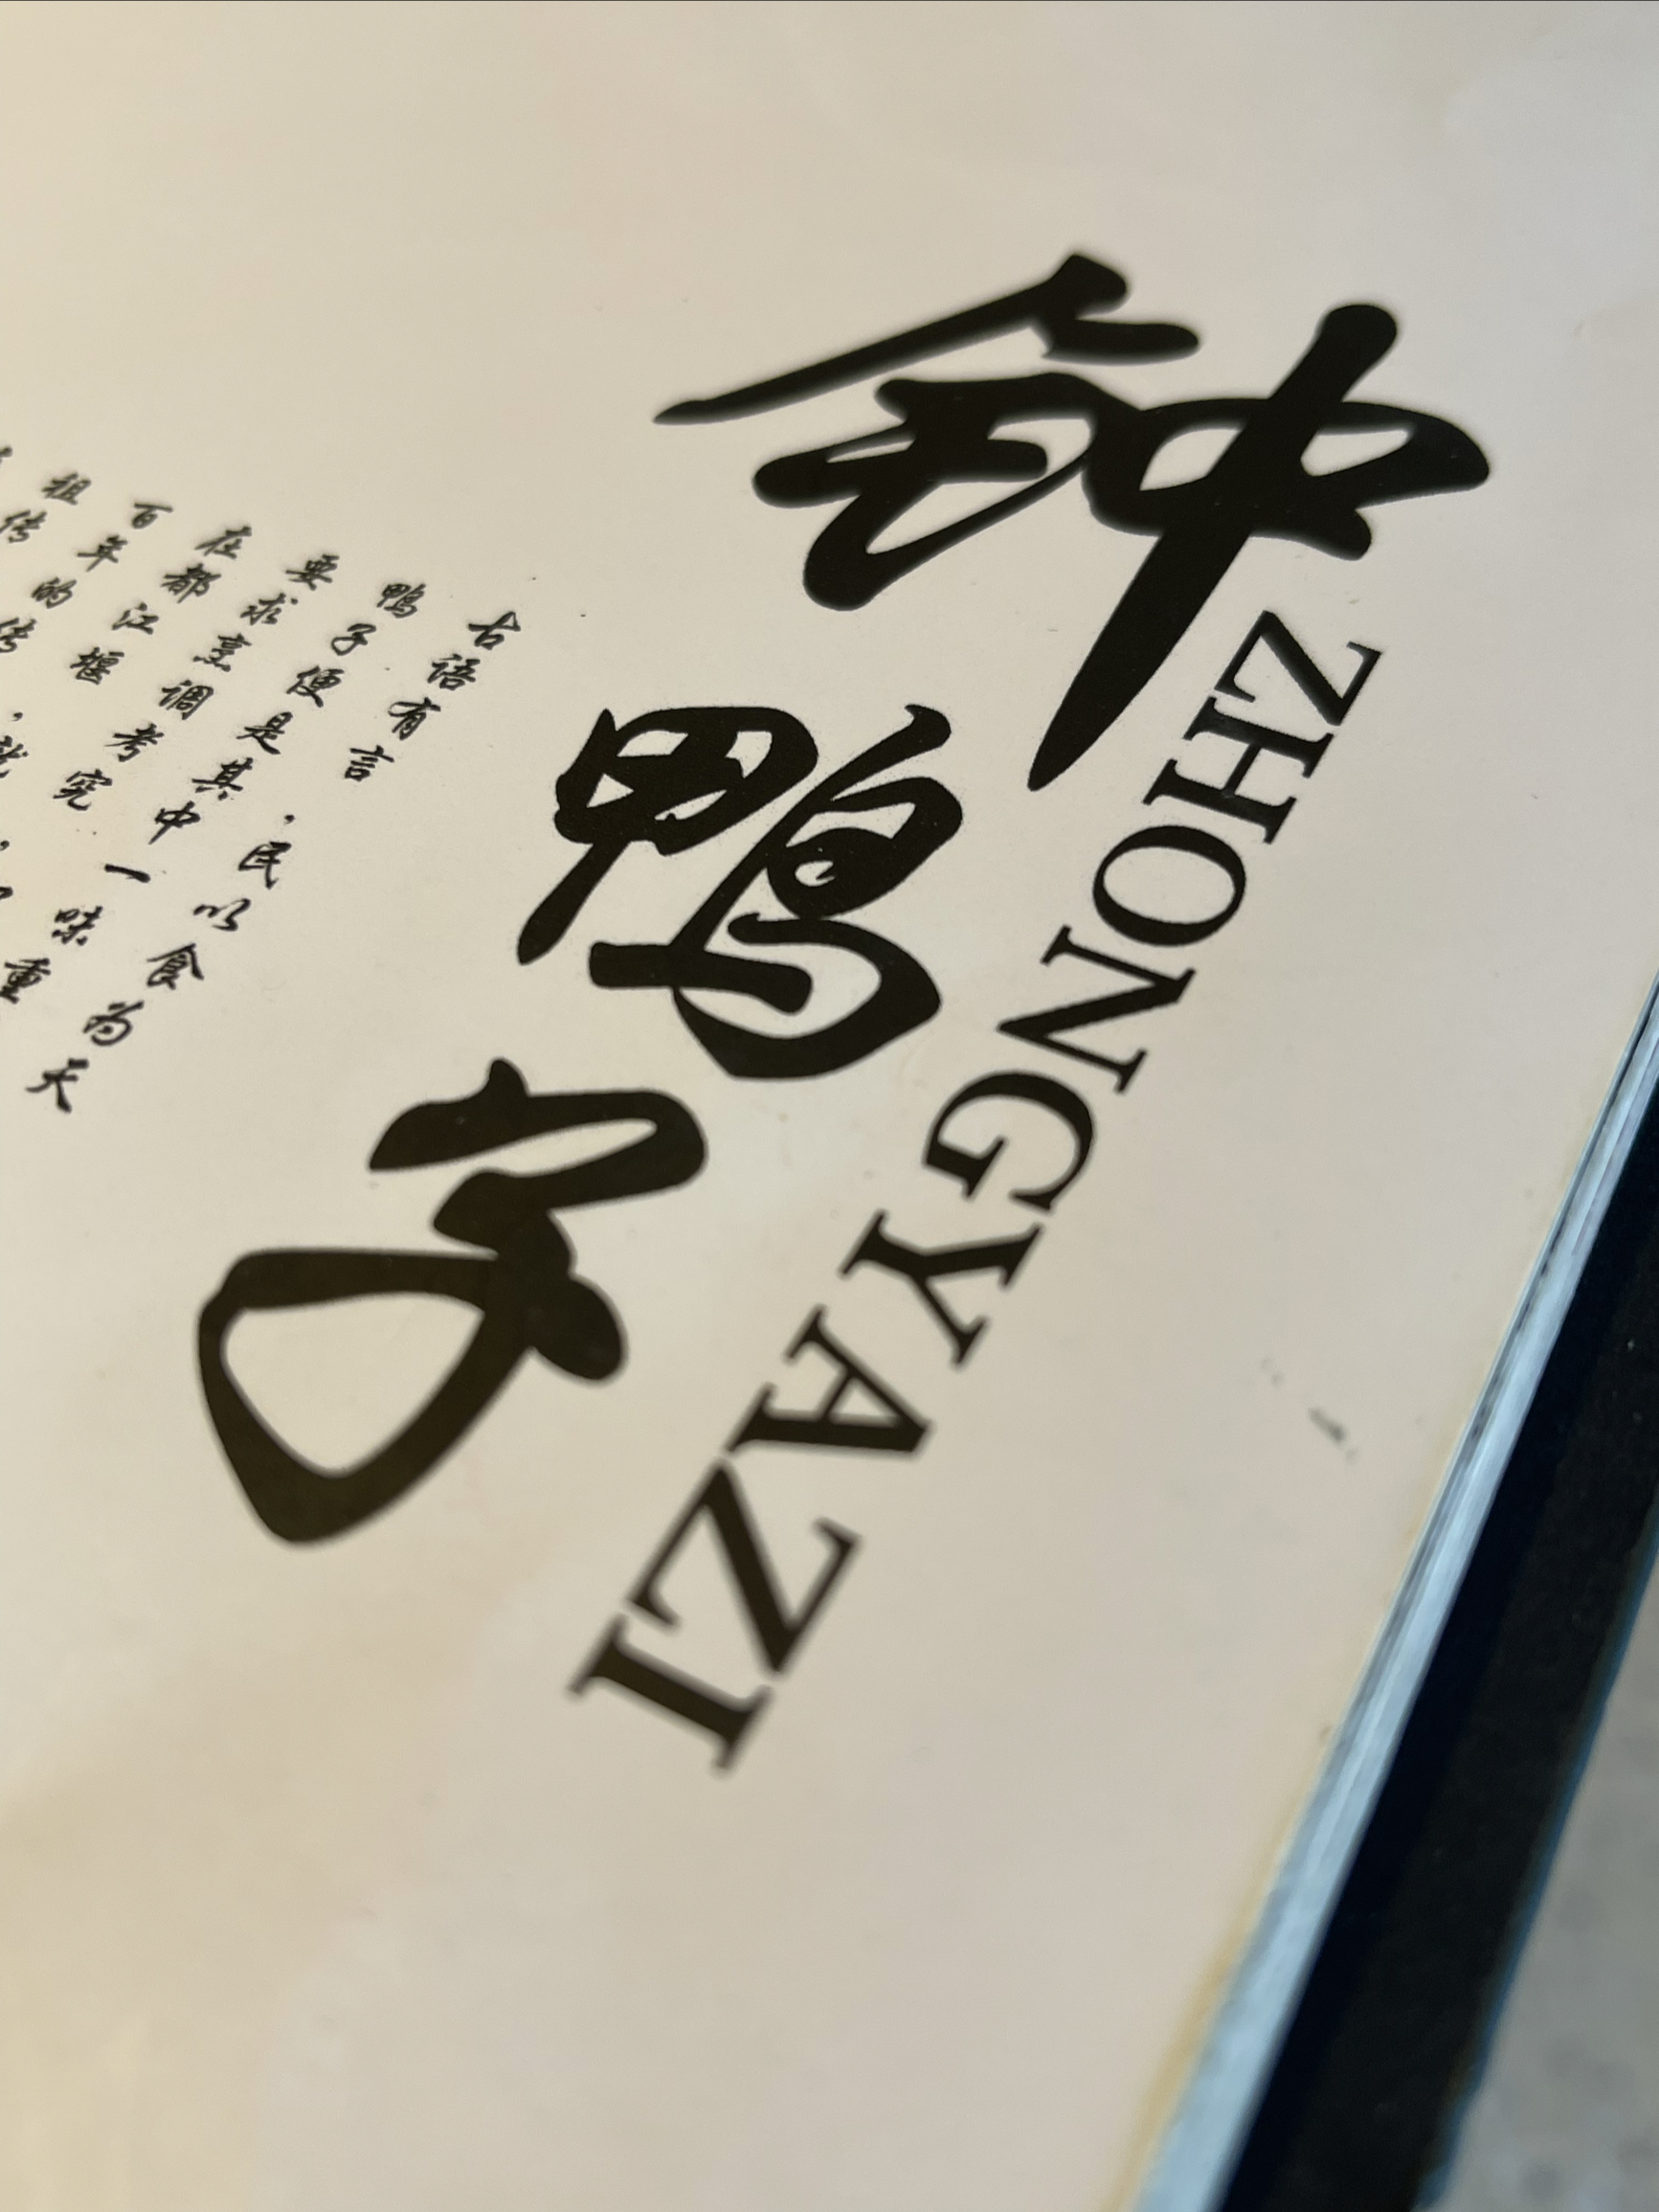 钟鸭字
ZHONGYAZI
古语有言，民以食为天
鸭子便是其中一味重
要求烹调考究。
在都江堰，
百年的传
祖传